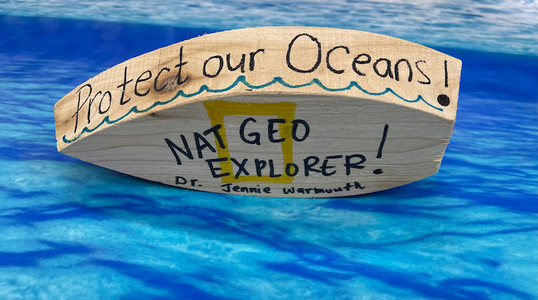 Protect our Oceans!
NAT GEO
EXPLORER!
Dr. Jennie Warmouth